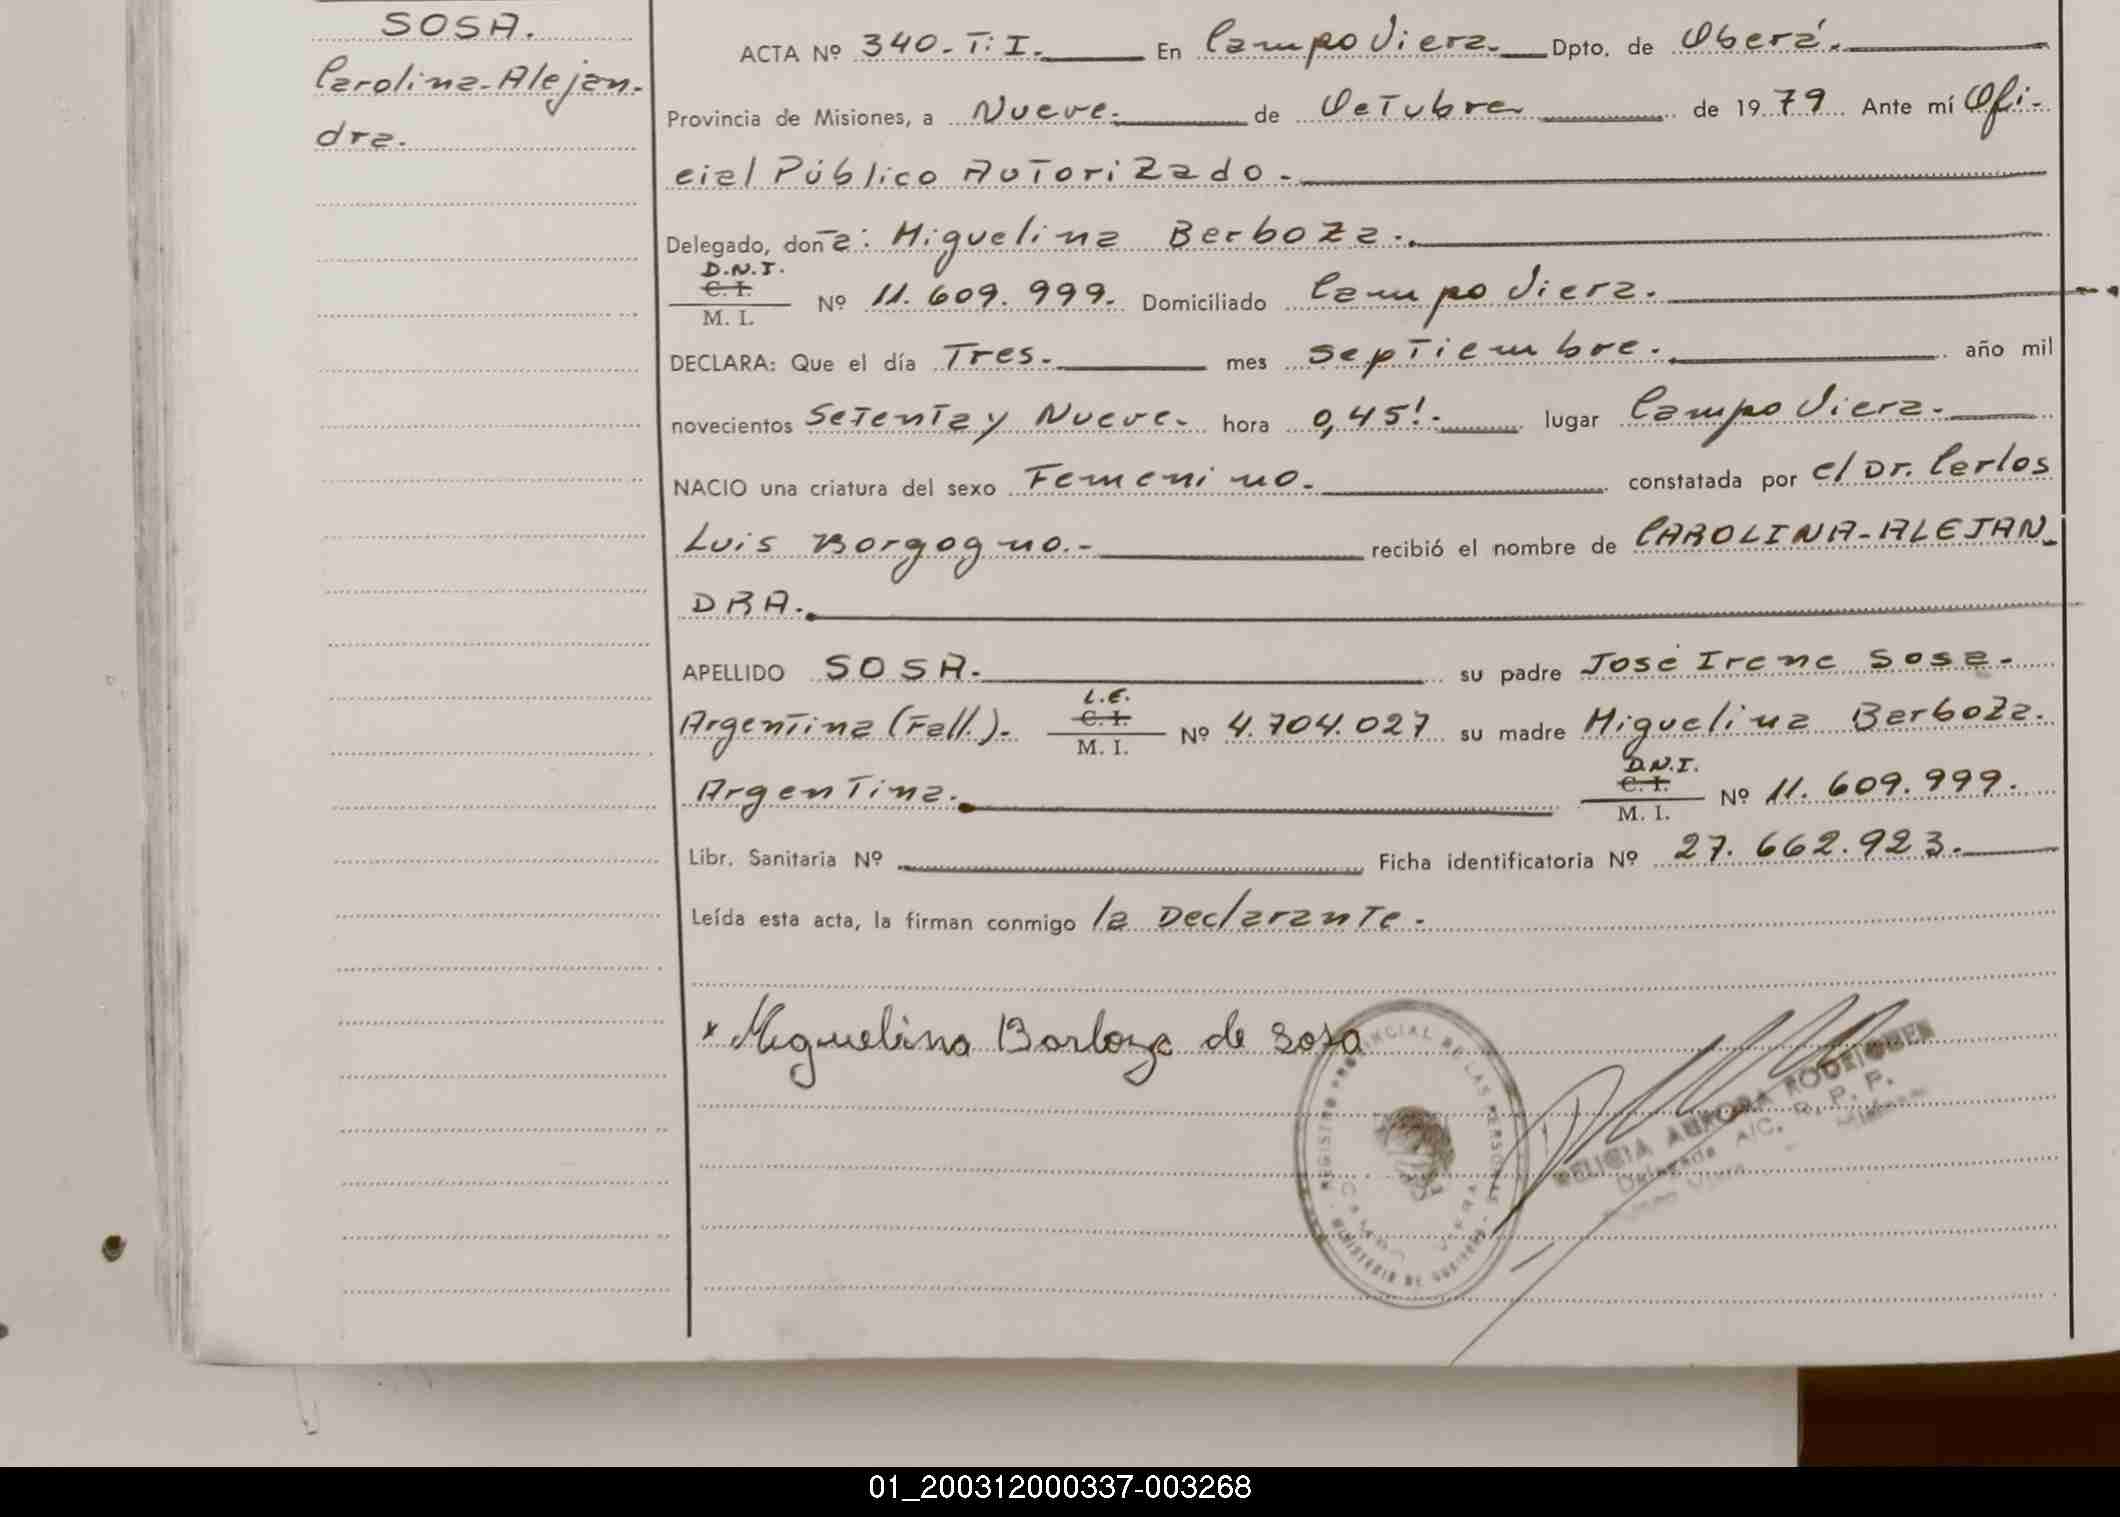 SOSA.
Carolina-Alejan-
dra.
ACTA Nº 340-T:I. En Campo Viera. Dpto. de Oberá.
Provincia de Misiones, a Nueve. de Octubre de 1979 Ante mí Ofi-
cial Público Autorizado.
Delegado, doña: Miguelina Barboza.
D.N.I.
C. I.
M. I. Nº 11.609.999. Domiciliado Campo Viera.
DECLARA: Que el día Tres. mes Septiembre. año mil
novecientos Setenta y Nueve. hora 0,45!. lugar Campo Viera.
NACIO una criatura del sexo Femenino. constatada por el Dr. Carlos
Luis Borgogno.- recibió el nombre de CAROLINA-ALEJAN-
DRA.
APELLIDO SOSA. su padre José Irene Sosa.
L.E.
Argentina (Fall.). C. I.
M. I. Nº 4.704.027 su madre Miguelina Barboza.
D.N.I.
Argentina. C. I.
M. I. Nº 11.609.999.
Libr. Sanitaria Nº Ficha identificatoria Nº 27.662.923.
Leída esta acta, la firman conmigo la Declarante.
x Miguelina Barboza de Sosa
REGISTRO PROVINCIAL DE LAS PERSONAS
CAMPO VIERA
MINISTERIO DE GOBIERNO
DELICIA AURORA RODRIGUEZ
Delegada A/C. R. P. P.
Campo Viera - Misiones
01_200312000337-003268